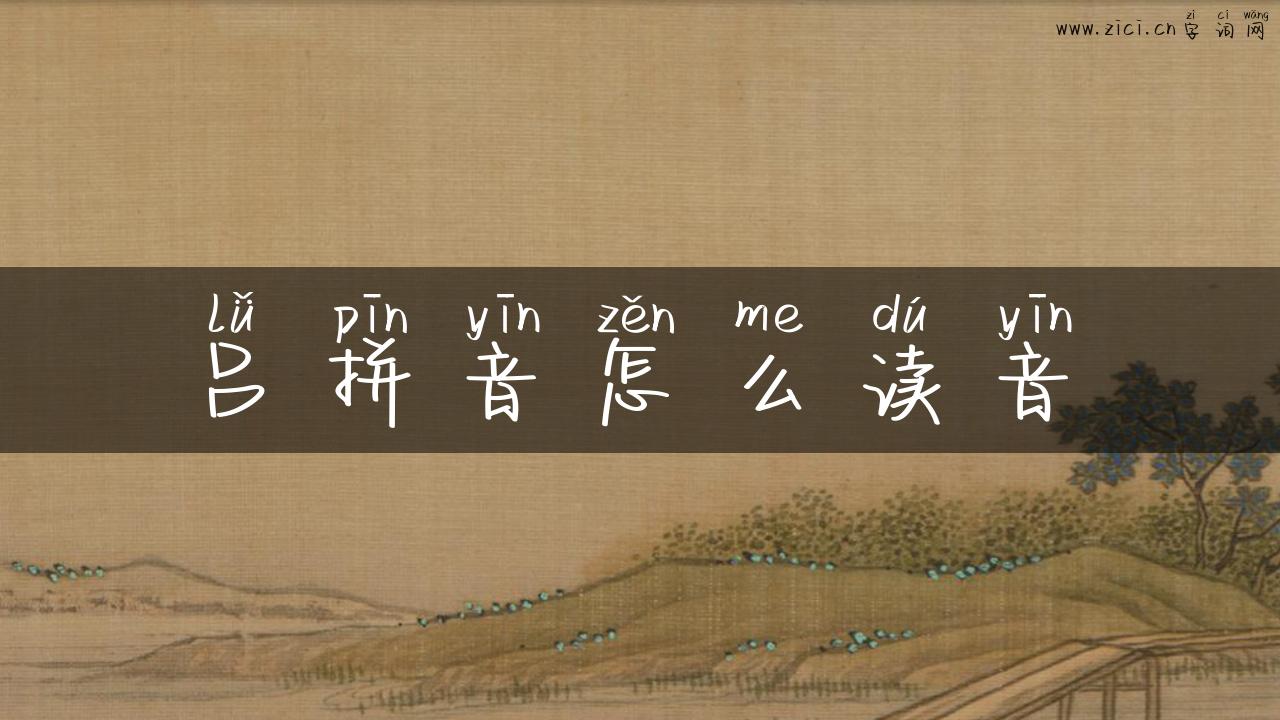 zì cí wǎng
www.zici.cn 字词网
lǚ pīn yīn zěn me dú yīn
吕拼音怎么读音